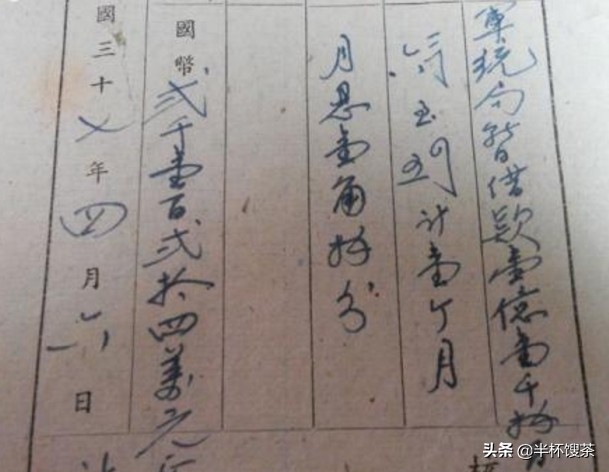 軍統局暫借款壹億壹千捌
計壹个月
月息壹角捌分
國幣弍千壹百弍拾四萬元
國三十七年四月六日
头条 @半杯馊茶